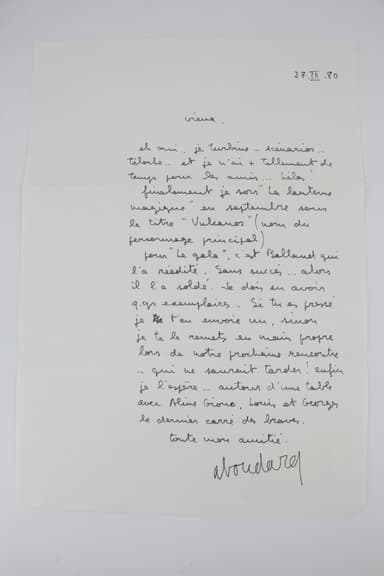 27. IX .80
vieux.
eh oui, je turbine - scénarios..
téloche.. et je n'ai + tellement de
temps pour les amis... hélas!
finalement je sors "La lanterne
magique" en septembre sous
le titre "Vulcanos" (nom du
personnage principal)
pour "Le gala", c'est Balland qui
l'a réédité. Sans succès... alors
il l'a soldé. Je dois en avoir
q.qs exemplaires.. Si tu es pressé
je t'en envoie un, sinon
je te le remets en main propre
lors de notre prochaine rencontre
.. qui ne saurait tarder! enfin
je l'espère... autour d'une table
avec Aline Giono, Louis et Georges
le dernier carré des braves.
toute mon amitié.
aboudard